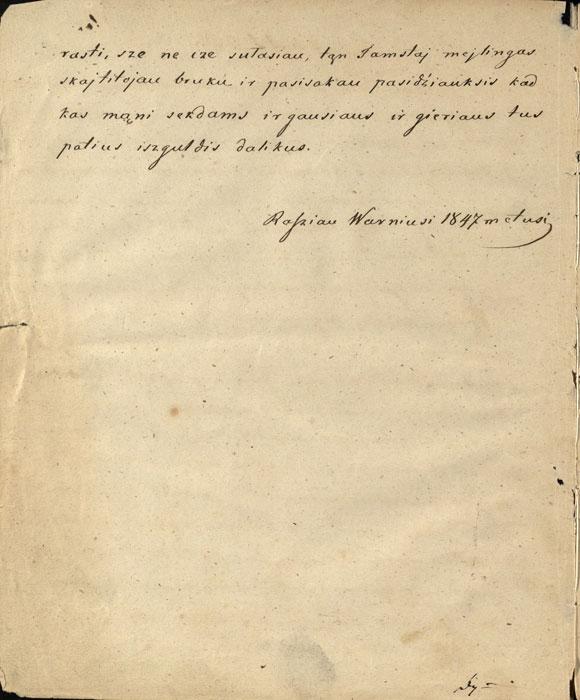 rasti, sze ne cze sutasiau, tąn Tamstaj mejlingas
skajtitojau bruku ir pasisakau pasidźiauksis kad
kas mąni sekdams ir gausiaus ir gieriaus tus
patius iszguldis dalikus.
Rasziau Warniusi 1847 metusi